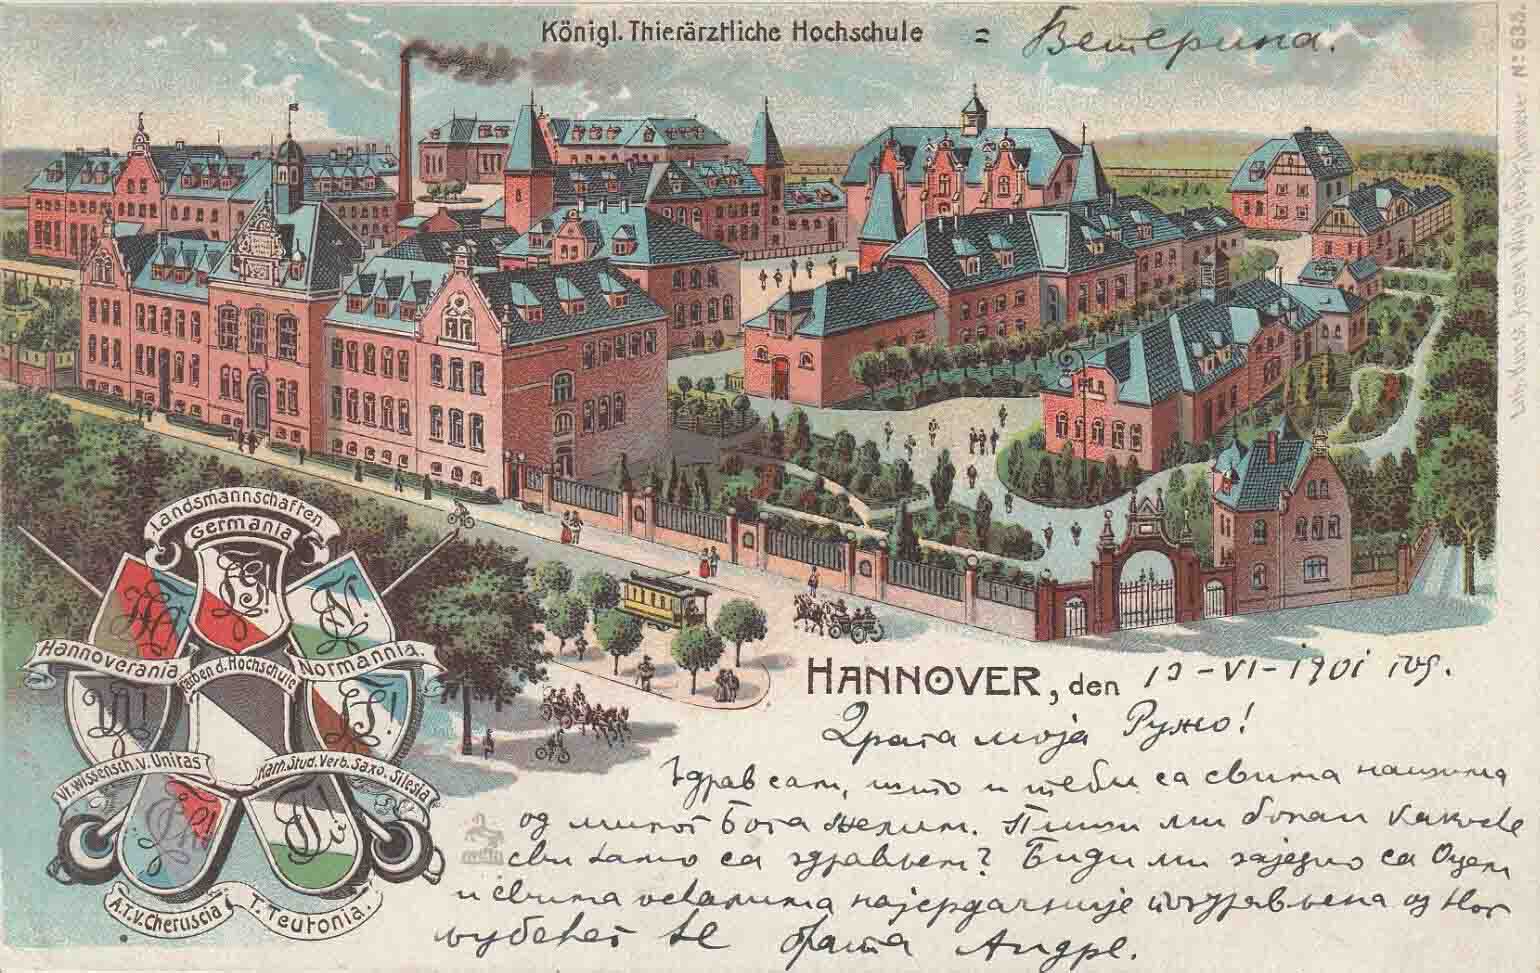 Königl. Thierärztliche Hochschule = Ветерина.
Nº 633.
Landsmannschaften
Germania
Hannoverania
Farben d. Hochschule
Normannia.
Vt. wissensch. v. Unitas
Kam. Stud. Verb. Saxo. Silesia
A.T.V. Cheruscia
T. Teutonia.
HANNOVER, den 12-VI-1901 год.
Драга моја Ружо!
Здрав сам, што и теби са свима нашима
од милог Бога желим. Пиши ми богати како сте
сви тамо са здрављем? Буди ми заједно са Оцем
и свима осталима најсрдачније поздрављена од
љубећег те брата Андре.